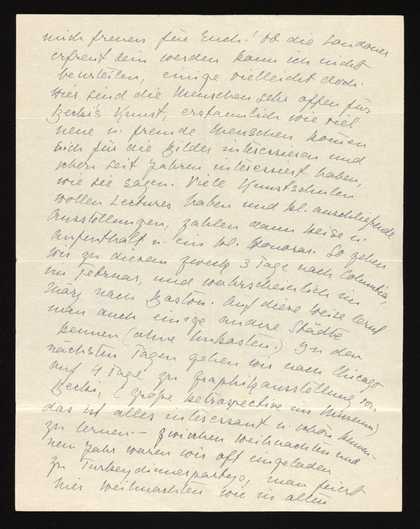 mich freuen für Euch! Ob die Londoner
erfreut sein werden kann ich nicht
beurteilen, einige vielleicht doch.
Hier sind die Menschen sehr offen für
Beckis Kunst, erstaunlich wie viel
neue u. fremde Menschen kommen
sich für die Bilder interessieren und
schon seit Jahren interessiert haben,
wie sie sagen. Viele Kunstschulen
wollen Lectures haben und kl. anschließende
Ausstellungen, zahlen dann Reise u.
Aufenthalt u. ein kl. Honorar. So gehen
wir zu diesem Zweck 3 Tage nach Columbia,
im Februar, und wahrscheinlich im
März nach Boston. Auf diese Weise lernt
man auch einige andere Städte
kennen (ohne Unkosten.) In den
nächsten Tagen gehen wir nach Chicago
auf 4 Tage zu Graphikausstellung von
Becki, (große Retrospective im Museum)
das ist alles interessant u. schön kennen
zu lernen — Zwischen Weihnachten und
neu Jahr waren wir oft eingeladen
zu Turkeydinnerpartys, man feiert
hier Weihnachten wie im alten